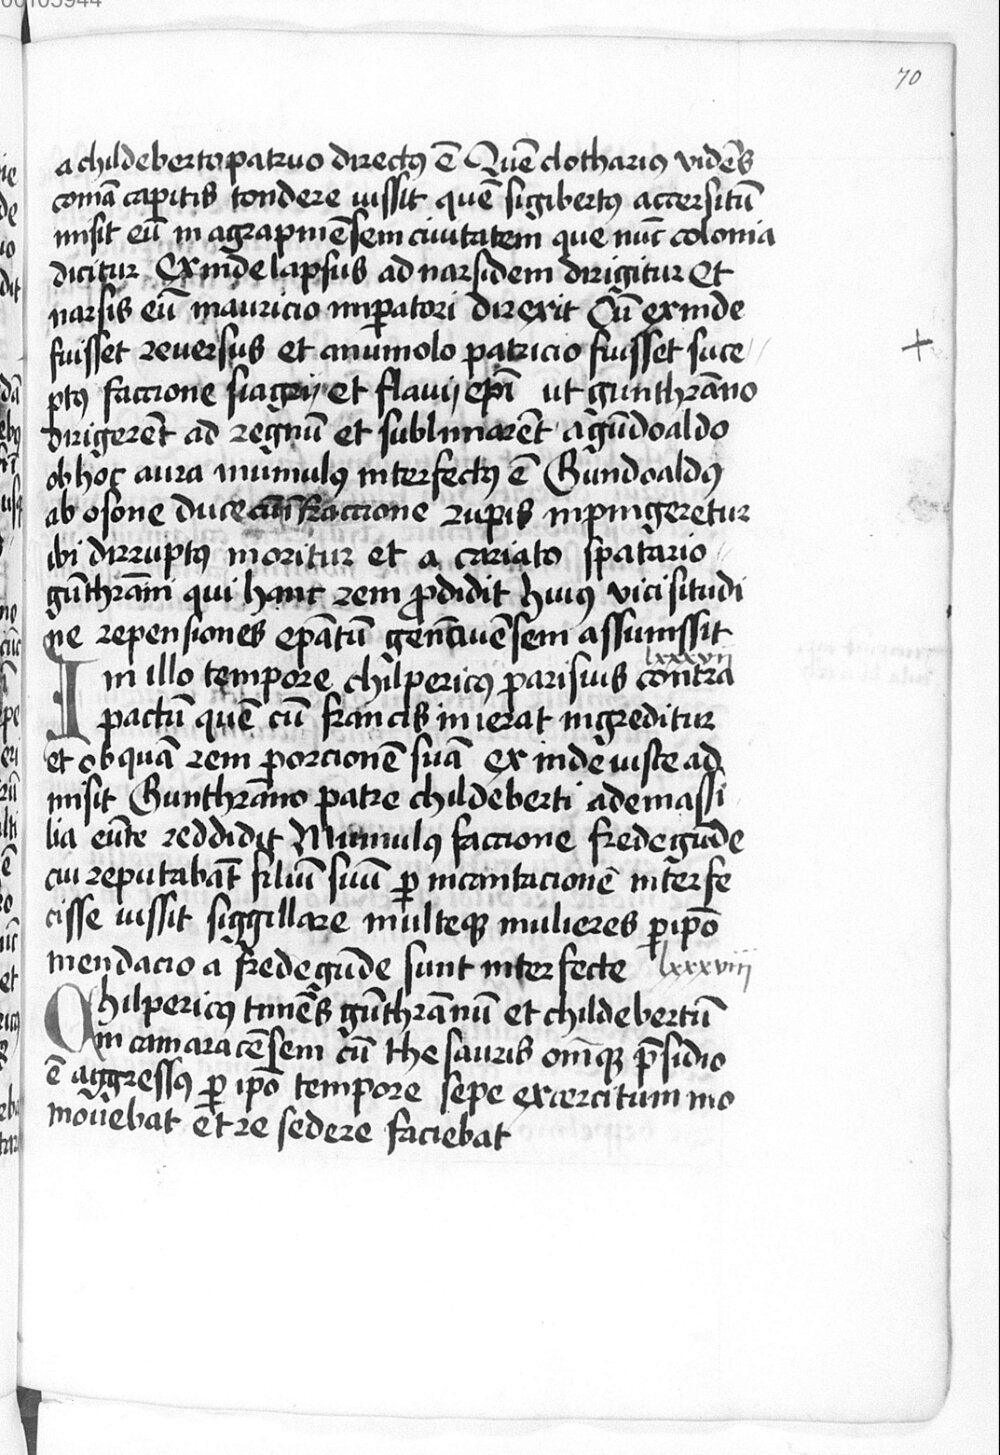 70
a childeberto patruo directꝰ ē Quē clotharius vidēs
comā capitis tondere iussit quē sigibertꝰ accersitū
misit eū in agrapinēsem ciuitatem que nūc colonia
dicitur Exinde lapsus ad narsidem dirigitur Et
narsis eū mauricio imꝑatori direxit Cū exinde
fuisset reuersus et mumolo patricio fuisset suce
ptꝰ faccione siagrij et flauij epī ut gunthrāno
dirigerēt ad regnū et sublimarēt a gūdoaldo
ob hoc aura mumulꝰ interfectꝰ ē Gundoaldꝰ
ab osone duce faccione rupis inpingeretur
ibi dirruptꝰ moritur et a cariato spatario
gūthrāni qui hanc rem ꝓdidit huiꝰ vicisitudi
ne repensiones epātum genēuēsem assumssit
lxxxvij
In illo tempore chilpericꝰ parisius contra
pactū quē cū francis inierat ingreditur
et ob quā rem porcionē suā exinde iuste ad
misit Gunthrāno patre childeberti ade massi
lia eūte reddidit Mumulꝰ faccione fredegūde
cui reputabāt filiū suū ꝑ incantacionē interfe
cisse iussit siggillare multeqꝫ mulieres ꝑ ipō
mendacio a fredegūde sunt interfecte lxxxviij
Chilpericꝰ timēs gūthrānū et childebertū
in camaracēsem cū thesauris omīqꝫ p̄sidio
ē aggressꝰ ꝑ ipō tempore sepe excercitum mo
mouebat et resedere faciebat